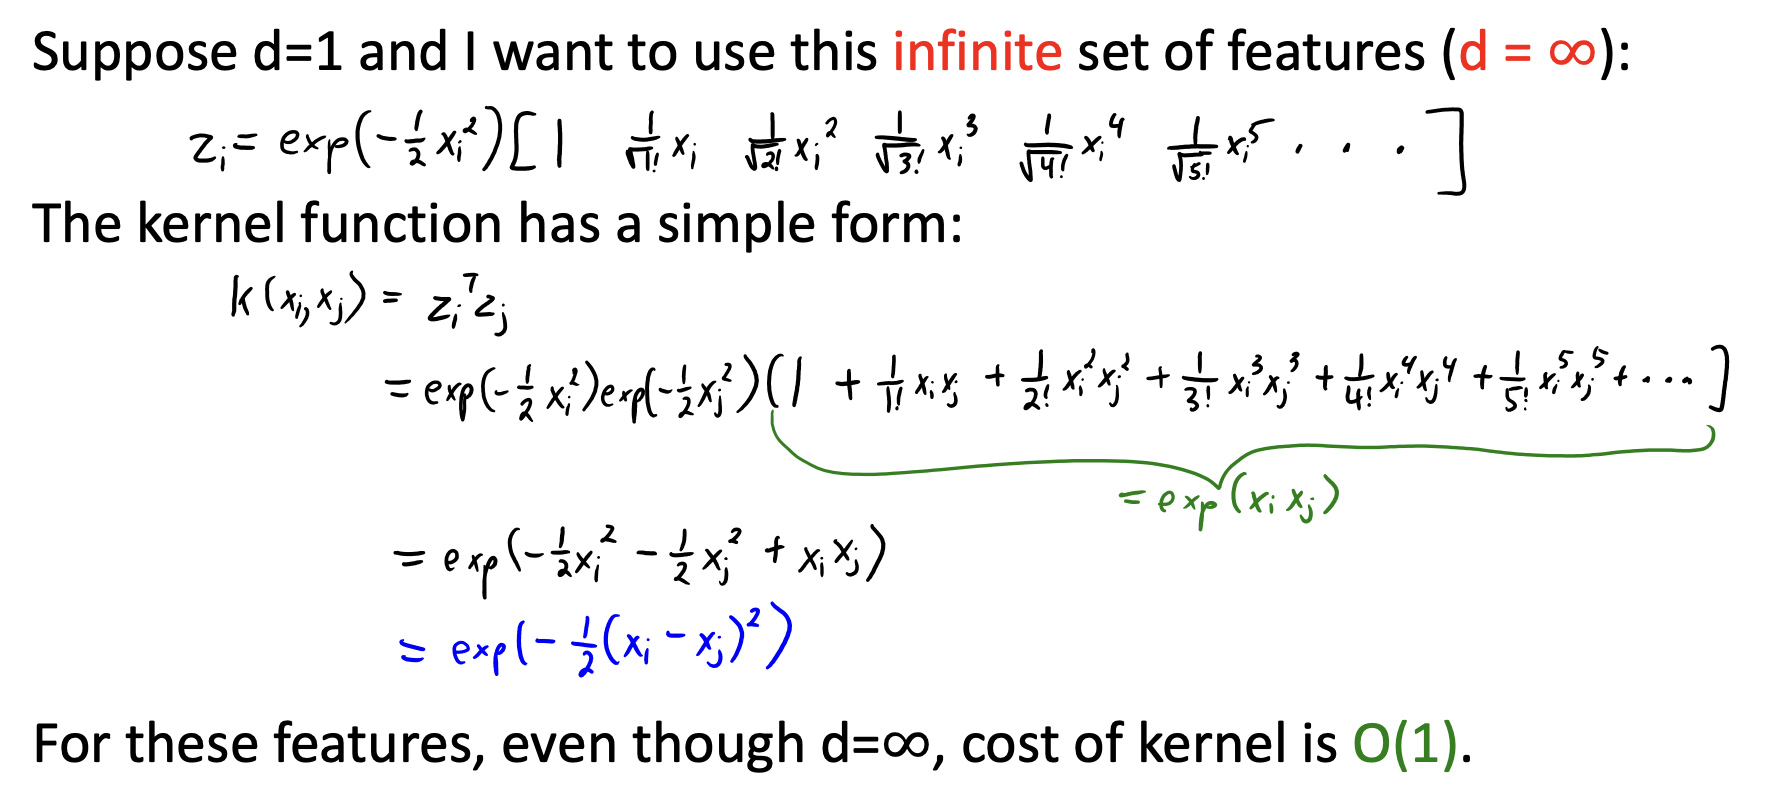 Suppose d=1 and I want to use this infinite set of features (d = ∞):
zᵢ = exp(-½ xᵢ²)[1 1/√1! xᵢ 1/√2! xᵢ² 1/√3! xᵢ³ 1/√4! xᵢ⁴ 1/√5! xᵢ⁵ . . . ]
The kernel function has a simple form:
k(xᵢ, xⱼ) = zᵢᵀzⱼ
= exp(-½ xᵢ²)exp(-½ xⱼ²)(1 + 1/1! xᵢxⱼ + 1/2! xᵢ²xⱼ² + 1/3! xᵢ³xⱼ³ + 1/4! xᵢ⁴xⱼ⁴ + 1/5! xᵢ⁵xⱼ⁵ + ... ]
= exp(xᵢ xⱼ)
= exp(-½xᵢ² - ½xⱼ² + xᵢxⱼ)
= exp(-½(xᵢ - xⱼ)²)
For these features, even though d=∞, cost of kernel is O(1).